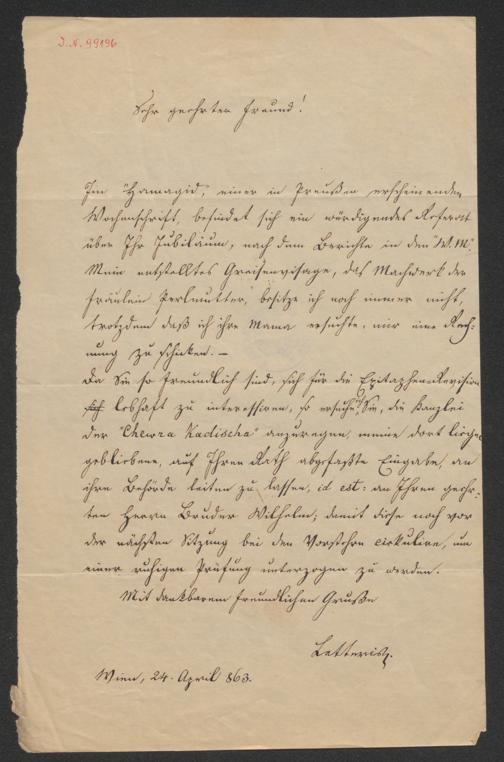 J. N. 99196
Sehr geehrter Freund!
Im "Hamagid", einer in Preußen erscheinenden
Wochenschrift, befindet sich ein würdigendes Referat
über Ihr Jubiläum, nach dem Berichte in den "W. M."
Mein entstelltes Greisenvisage, das Machwerk der
Fräulein Perlmutter, besitze ich noch immer nicht,
trotzdem daß ich ihre Mama ersuchte, mir eine Rech-
nung zu schicken. —
Da Sie so freundlich sind, sich für die Epitaphen-Revision
lebhaft zu interessiren, so ersuche Sie, die Kanzlei
der "Chewra Kadischa" anzuregen, meine dort liegen
gebliebene, auf Ihren Rath abgefaßte Eingabe, an
ihre Behörde leiten zu lassen, id est: an Ihren geehr-
ten Herrn Bruder Wilhelm; damit diese noch vor
der nächsten Sitzung bei den Vorstehern cirkulire, um
einer ruhigen Prüfung unterzogen zu werden.
Mit dankbarem freundlichen Gruße
Letteris.
Wien, 24. April 863.